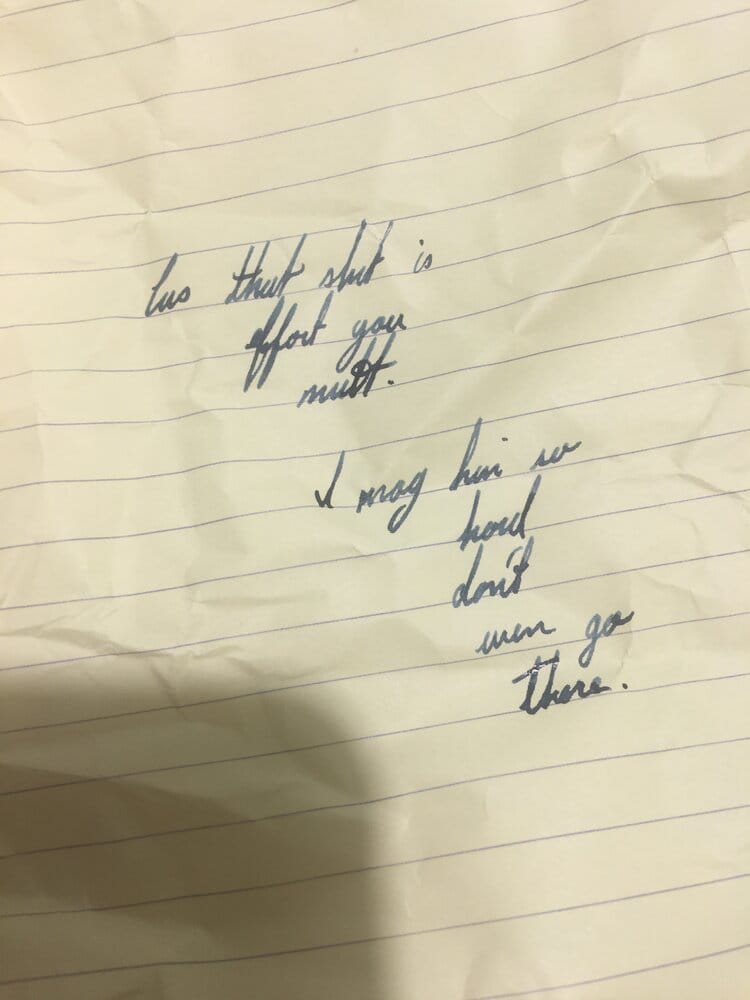 cus that shit is
effort you
mutt.
I mog him so
hard
don't
even go
there.